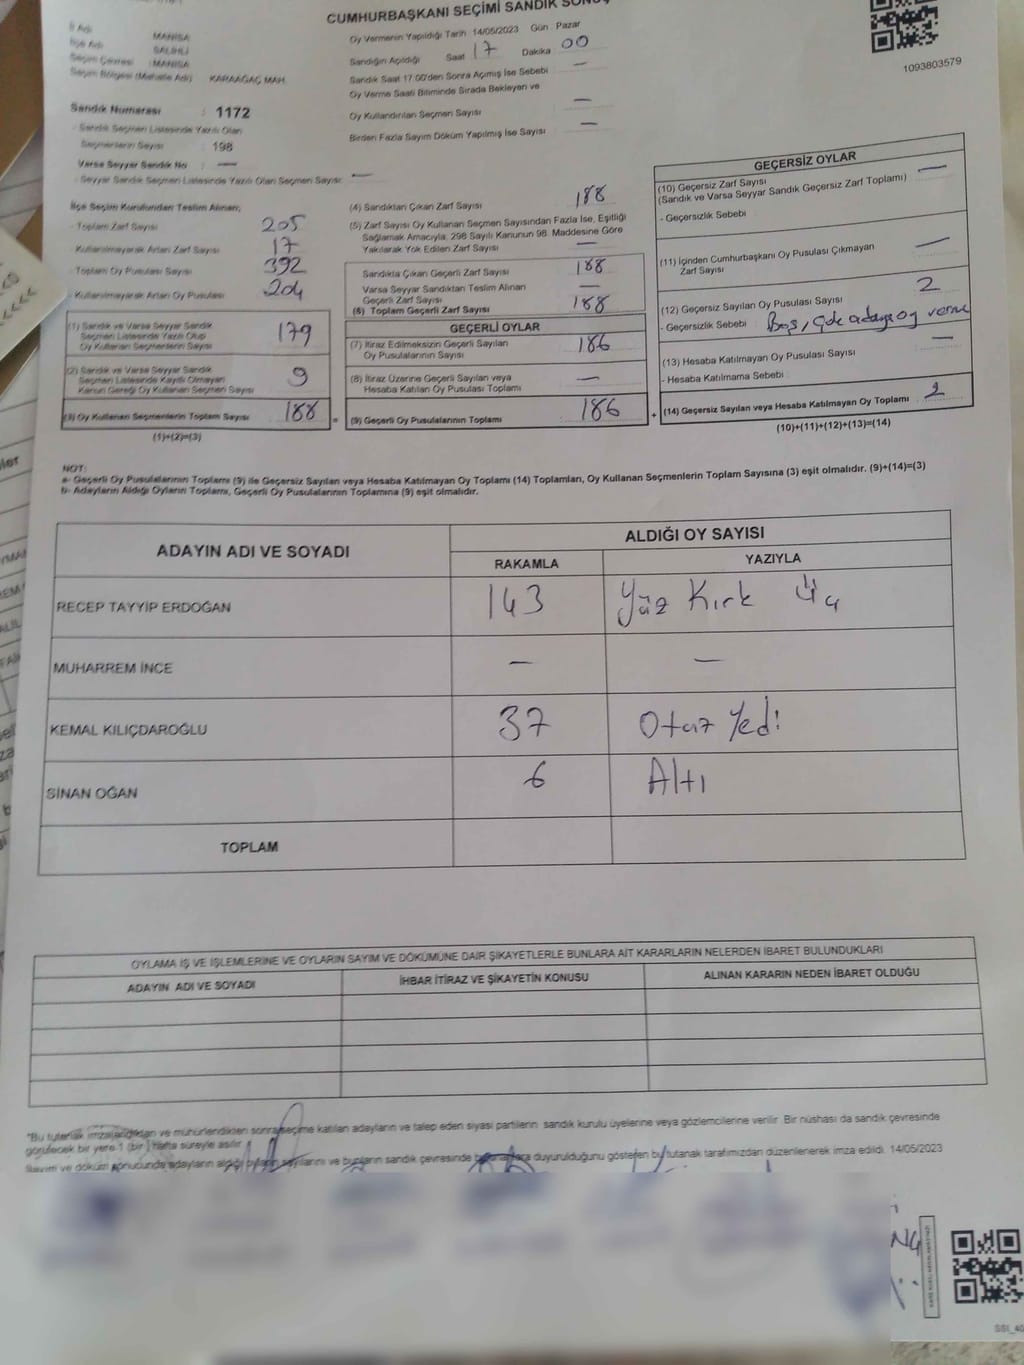 CUMHURBAŞKANI SEÇİMİ SANDIK
İl Adı MANİSA
İlçe Adı SALİHLİ
Seçim Çevresi : MANİSA
Seçim Bölgesi (Mahalle Adı) KARAAĞAÇ MAH.
Oy Vermenin Yapıldığı Tarih 14/05/2023 Gün : Pazar
Sandığın Açıldığı Saat 17 Dakika 00
Sandık Saat 17:00'den Sonra Açılmış İse Sebebi —
Oy Verme Saati Bitiminde Sırada Bekleyen ve
Oy Kullandırılan Seçmen Sayısı —
Birden Fazla Sayım Döküm Yapılmış İse Sayısı —
1093803579
Sandık Numarası : 1172
- Sandık Seçmen Listesinde Yazılı Olan
Seçmenlerin Sayısı : 198
Varsa Seyyar Sandık No : —
- Seyyar Sandık Seçmen Listesinde Yazılı Olan Seçmen Sayısı: —
İlçe Seçim Kurulundan Teslim Alınan;
- Toplam Zarf Sayısı 205
- Kullanılmayarak Artan Zarf Sayısı 17
- Toplam Oy Pusulası Sayısı 392
- Kullanılmayarak Artan Oy Pusulası 204
(1) Sandık ve Varsa Seyyar Sandık
Seçmen Listesinde Yazılı Olup
Oy Kullanan Seçmenlerin Sayısı 179
(2) Sandık ve Varsa Seyyar Sandık
Seçmen Listesinde Kayıtlı Olmayan
Kanun Gereği Oy Kullanan Seçmen Sayısı 9
(3) Oy Kullanan Seçmenlerin Toplam Sayısı 188 =
(1)+(2)=(3)
(4) Sandıktan Çıkan Zarf Sayısı 188
(5) Zarf Sayısı Oy Kullanan Seçmen Sayısından Fazla İse, Eşitliği
Sağlamak Amacıyla; 298 Sayılı Kanunun 98. Maddesine Göre
Yakılarak Yok Edilen Zarf Sayısı —
Sandıkta Çıkan Geçerli Zarf Sayısı 188
Varsa Seyyar Sandıktan Teslim Alınan
Geçerli Zarf Sayısı —
(6) Toplam Geçerli Zarf Sayısı 188
GEÇERLİ OYLAR
(7) İtiraz Edilmeksizin Geçerli Sayılan
Oy Pusulalarının Sayısı 186
(8) İtiraz Üzerine Geçerli Sayılan veya
Hesaba Katılan Oy Pusulası Toplamı —
(9) Geçerli Oy Pusulalarının Toplamı 186 +
GEÇERSİZ OYLAR
(10) Geçersiz Zarf Sayısı —
(Sandık ve Varsa Seyyar Sandık Geçersiz Zarf Toplamı)
- Geçersizlik Sebebi
(11) İçinden Cumhurbaşkanı Oy Pusulası Çıkmayan
Zarf Sayısı —
(12) Geçersiz Sayılan Oy Pusulası Sayısı 2
- Geçersizlik Sebebi Boş, çok adaya oy verme
(13) Hesaba Katılmayan Oy Pusulası Sayısı —
- Hesaba Katılmama Sebebi
(14) Geçersiz Sayılan veya Hesaba Katılmayan Oy Toplamı 2
(10)+(11)+(12)+(13)=(14)
NOT:
a- Geçerli Oy Pusulalarının Toplamı (9) ile Geçersiz Sayılan veya Hesaba Katılmayan Oy Toplamı (14) Toplamları, Oy Kullanan Seçmenlerin Toplam Sayısına (3) eşit olmalıdır. (9)+(14)=(3)
b- Adayların Aldığı Oyların Toplamı, Geçerli Oy Pusulalarının Toplamına (9) eşit olmalıdır.
ADAYIN ADI VE SOYADI
ALDIĞI OY SAYISI
RAKAMLA YAZIYLA
RECEP TAYYİP ERDOĞAN 143 Yüz Kırk Üç
MUHARREM İNCE — —
KEMAL KILIÇDAROĞLU 37 Otuz Yedi
SİNAN OĞAN 6 Altı
TOPLAM
OYLAMA İŞ VE İŞLEMLERİNE VE OYLARIN SAYIM VE DÖKÜMÜNE DAİR ŞİKAYETLERLE BUNLARA AİT KARARLARIN NELERDEN İBARET BULUNDUKLARI
ADAYIN ADI VE SOYADI İHBAR İTİRAZ VE ŞİKAYETİN KONUSU ALINAN KARARIN NEDEN İBARET OLDUĞU
*Bu tutanak imzalandıktan ve mühürlendikten sonra seçime katılan adayların ve talep eden siyasi partilerin sandık kurulu üyelerine veya gözlemcilerine verilir. Bir nüshası da sandık çevresinde
görülecek bir yere 1 (bir) hafta süreyle asılır.
Sayım ve döküm sonucunda adayların aldığı oyların sayılarını ve bunların sandık çevresinde duyurulduğunu gösteren bu tutanak tarafımızdan düzenlenerek imza edildi. 14/05/2023